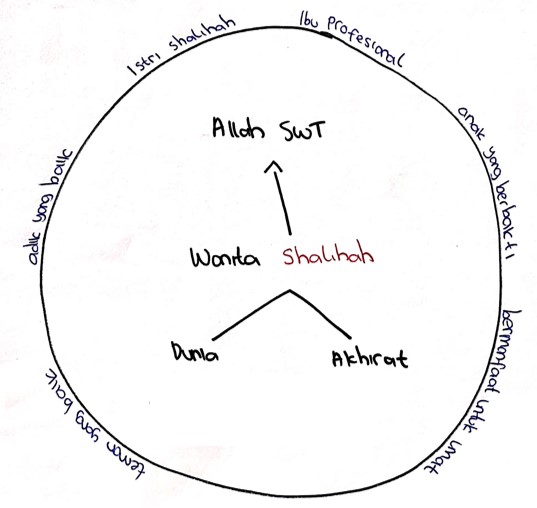 Istri shalihah
Ibu profesional
anak yang berbakti
bermanfaat untuk umat
teman yang baik
adik yang baik
Allah SWT
Wanita Shalihah
Dunia
Akhirat